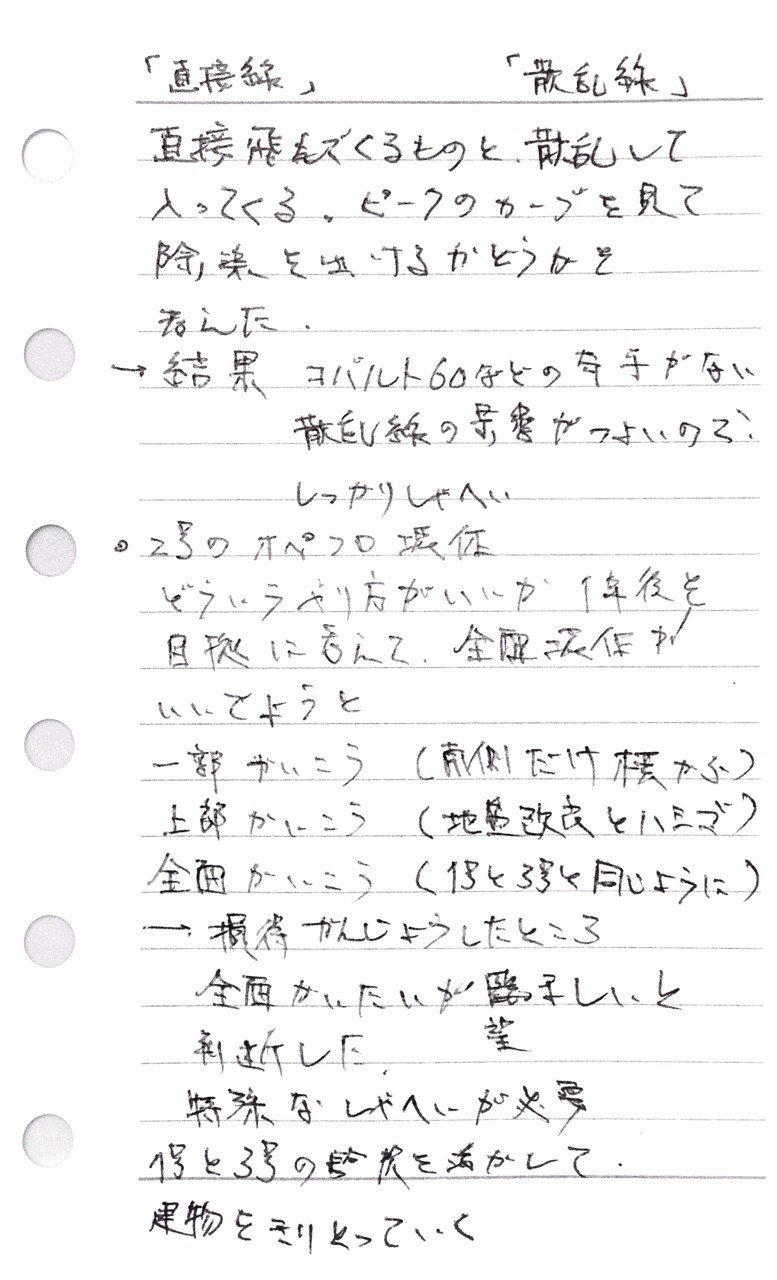 「直接線」 「散乱線」
直接飛んでくるものと、散乱して
入ってくる。ピークのカーブを見て
除染を出けるかどうかを
考えた.
→ 結果 コバルト60などの 寄与がない
散乱線の影響がつよいので、
しっかりしゃへい
• 2号の オペフロ 壊体
どういうやり方がいいか 1年後を
目標に考えて. 全面 壊体が
いいでようと
一部 かいこう (南側だけ 横から)
上部 かいこう (地盤改良とハミゴ)
全面 かいこう (1号と3号と同じように)
→ 損得 かんじょうしたところ
全面 かいたいが ましいと
望
判断した.
特殊な しゃへいが必要
1号と3号の を活かして.
建物を きりとっていく